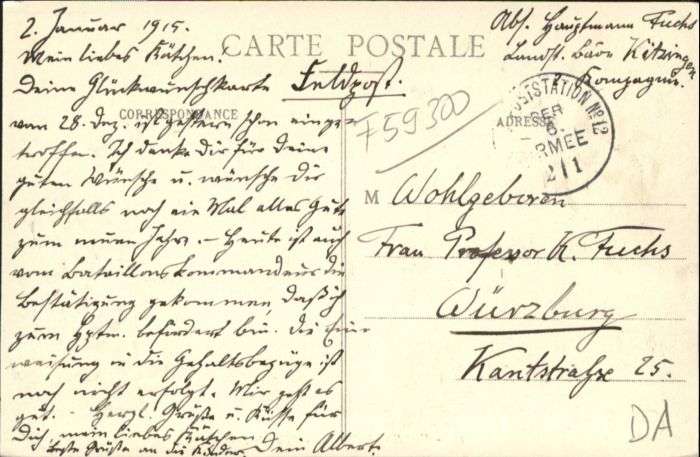 2. Januar 1915.
Mein liebes Kätchen!
Deine Glückwunschkarte
vom 28. Dez. ist gestern schon einge-
troffen. Ich danke Dir für deine
guten Wünsche u. wünsche dir
gleichfalls noch ein Mal alles Gute
zum neuen Jahr. – Heute ist auch
vom Bataillonskommandeur die
Bestätigung gekommen, daß ich
zum Hptm. befördert bin. Die Ein-
weisung in die Gehaltsbezüge ist
noch nicht erfolgt. Mir geht es
gut. – Herzl. Grüße u. Küsse für
Dich, mein liebes Kätchen
Dein Albert.
beste Grüße an die Kinder.
CARTE POSTALE
Feldpost.
CORRESPONDANCE
ADRESSE
F59300
Abs. Hauptmann Fuchs
Landst. Batl. Kitzingen
Kompagnie.
STATION No 12
DER
6.
ARMEE
2/1
M Wohlgeboren
Frau Professor K. Fuchs
Würzburg
Kantstraße 25.
DA